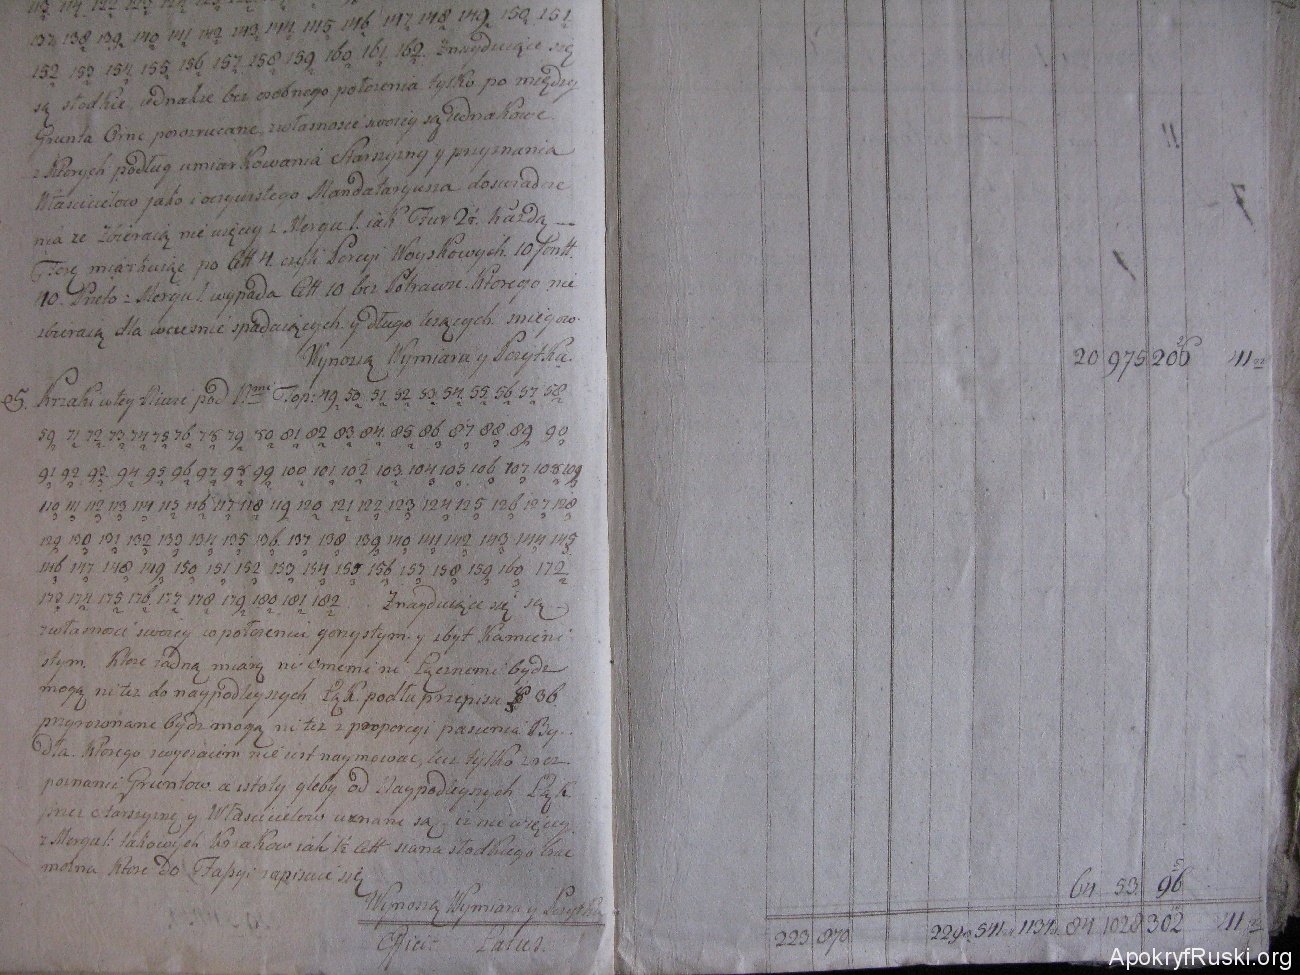 137 138 139 140 141 142 143 144 145 146 147 148 149 150 151
152 153 154 155 156 157 158 159 160 161 162 Znayduiące się
są słodkie, iednakże bez osobnego położenia tylko po między
Grunta Orne porozrucane, z własności swoiey są Jednakowe
z których podług umiarkowania Starszyzny y przyznania
Właścicielow jako i oczywistego Mandataryusza doświadcze
nia że zbieraią nie więcey z Morgu 1. iak Fur 2½ każdą
Furę miarkuiąc po Cett 4. czyli Porcyi Woyskowych 10 Fontt.
10. Przeto z Morgu 1. wypada Cett 10 bez Potrawu Którego nie
zbieraią dla wcześnie spadaiących y długo leżących śniegow
Wynoszą Wymiara y Pożytku. 20 975 206 41
5. Krzaki w tey Niwie pod Nrmi Top: 49 50 51 52 53 54 55 56 57 58
59 71 72 73 74 75 76 78 79 80 81 82 83 84 85 86 87 88 89 90
91 92 93 94 95 96 97 98 99 100 101 102 103 104 105 106 107 108 109
110 111 112 113 114 115 116 117 118 119 120 121 122 123 124 125 126 127 128
129 130 131 132 133 134 135 136 137 138 139 140 141 142 143 144 145
146 147 148 149 150 151 152 153 154 155 156 157 158 159 160 172
173 174 175 176 177 178 179 180 181 182 Znayduiące się są
z własności swoiey w położeniu gorzystym y zbyt Kamieni
stym Które żadną miarą ni Ornemi ni Łącznemi bydz
mogą ni też do naypodleyszych Łąk podłu przepisu § 36
przyrownane bydz mogą ni też z proporcyi pasienia By
dła Którego zwyczaiem nie iest naymować, lecz tylko z roz
poznania Gruntow a istoty gleby od Naypodleyszych Łąk
przez Starszyznę y Właścicielow uznane są iż nie więcey
z Morgu 1. takowych Krzakow iak ½ Cett siana słodkiego brać
można Które do Fassyi zapisuie się
Wynoszą Wymiara y Pożytku 64 53 96
Facit Latus 223 870 229 541 1131 84 1028 302 411
ApokryfRuski.org